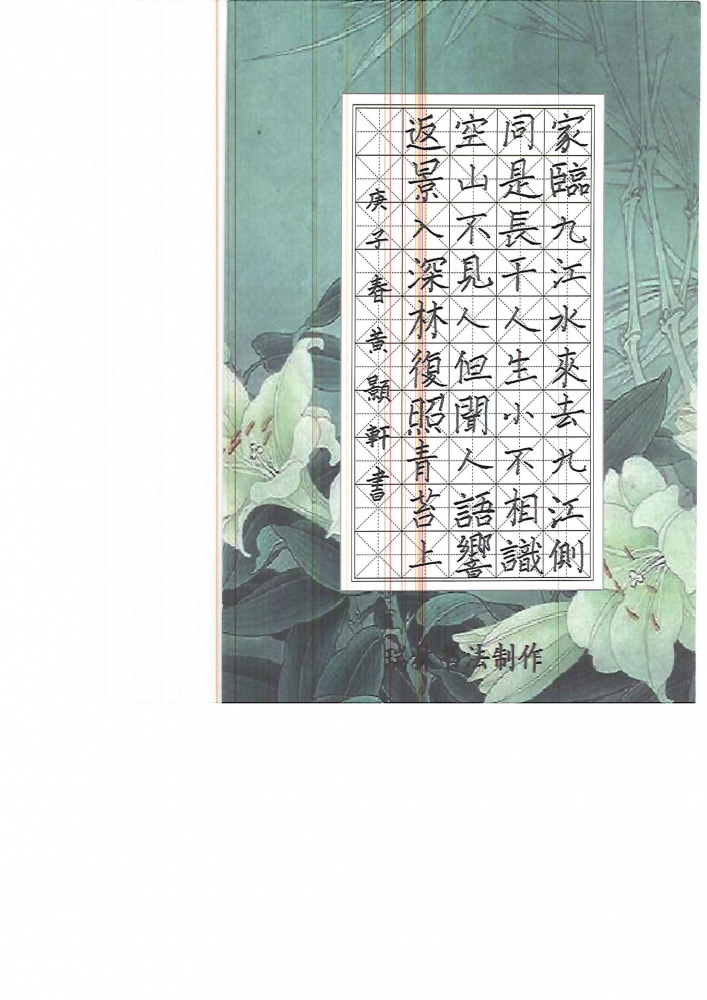 家臨九江水來去九江側
同是長干人生小不相識
空山不見人但聞人語響
返景入深林復照青苔上
庚子春黃顯軒書
法制作